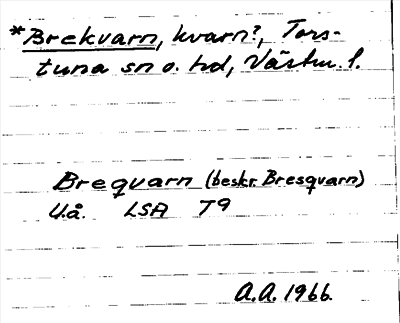 *Brekvarn, kvarn?, Tors-
tuna sn o. hd, Västm. l.
Brequarn (beskr. Bresquarn)
U.å. LSA T9
A.A. 1966.